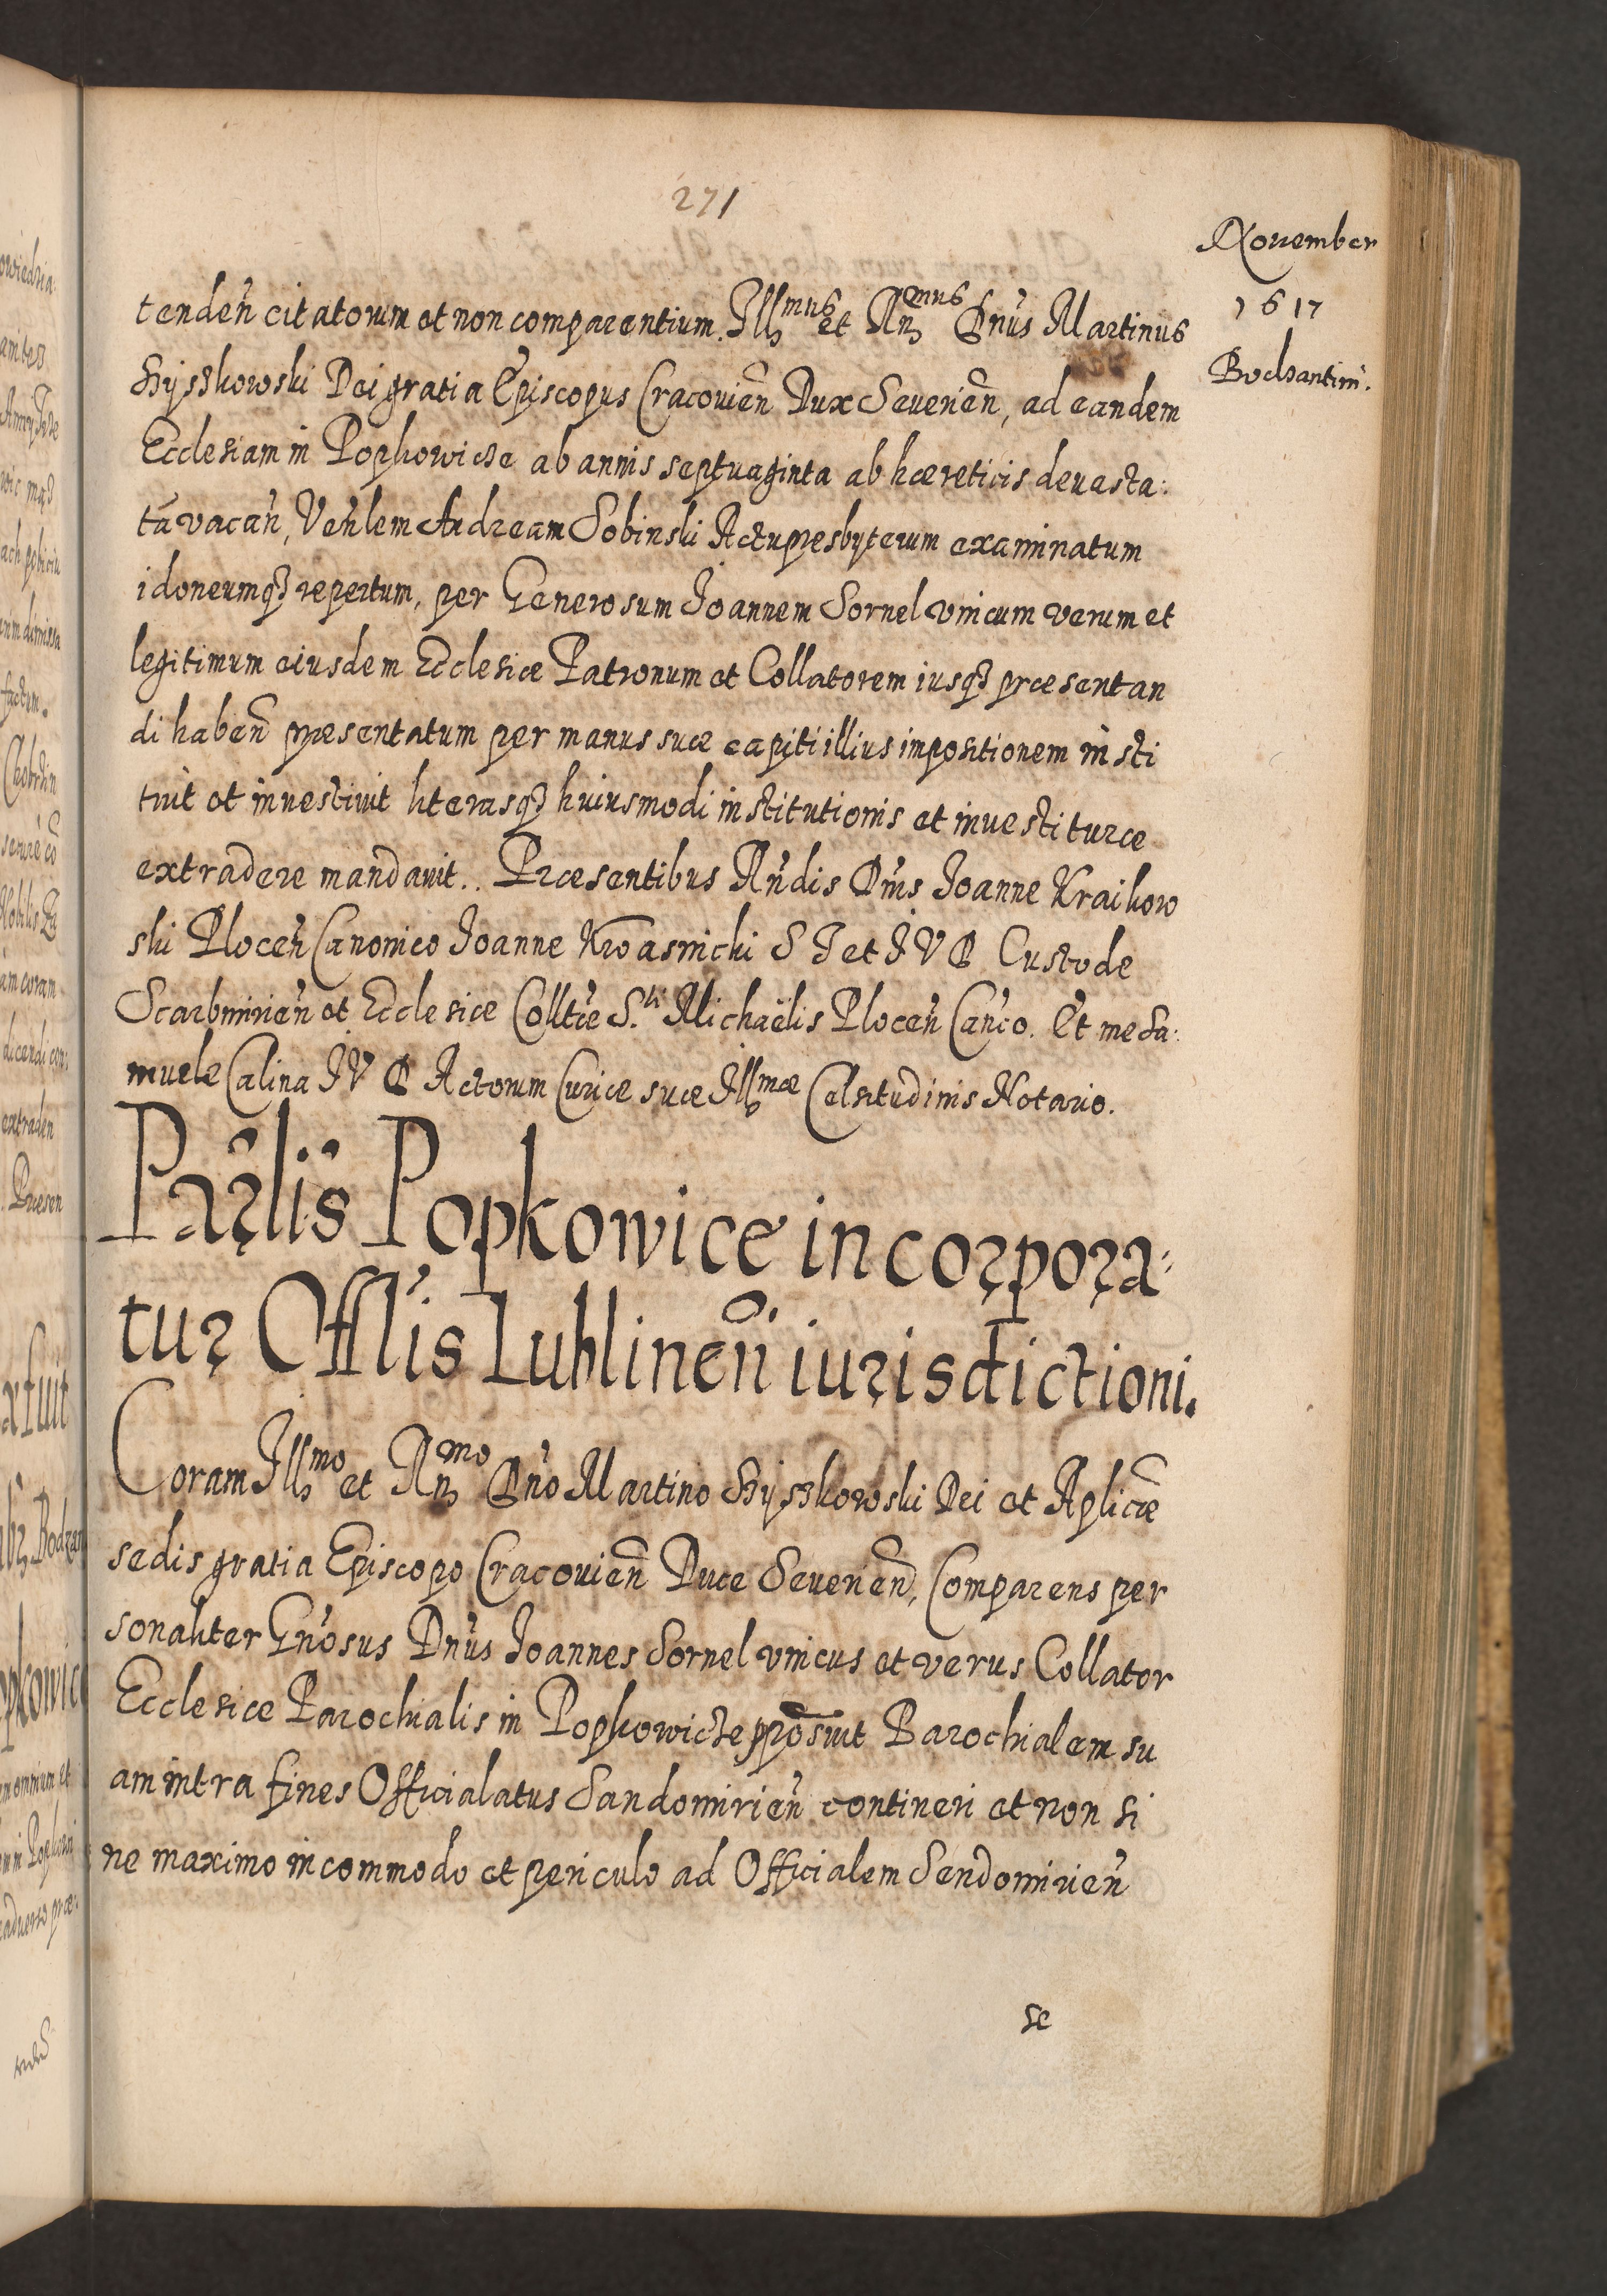 271
November
1617
Bodzantini.
tendeñ citatorum et non comparentium. Illmus et Rnmus Dnus Martinus
Szyszkowski Dei gratia Episcopus Cracovieñ Dux Severieñ, ad eandem
Ecclesiam in Popkowicze ab annis septuaginta ab hæreticis devasta:
tã vacañ, Veñlem Andream Sobinski Actu presbyterum examinatum
idoneumq₃ repertum, per Generosum Joannem Sornel vnicum verum et
legitimum eiusdem Ecclesiæ Patronum et Collatorem iusq₃ præsentan
di habeñ præsentatum per manus suæ capiti illius impositionem insti
tuit et investivit literasq₃ huiusmodi institutionis et investituræ
extradere mandavit.. Præsentibus Rñdis Dñis Joanne Kraikow
ski Ploceñ Canonico Joanne Kwasnicki S T et J V D Custode
Scarbmirieñ et Ecclesiæ Colltæ S.ti Michaëlis Ploceñ Cañco. Et me Sa:
muele Calina J V D Actorum Curiæ suæ Illmæ Celsitudinis Notario.
Parlis Popkowice incorpora:
tur Offlis Lublineñ iurisdictioni.
Coram Illmo et Rnmo Dño Martino Szyszkowski Dei et Aplicæ
sedis gratia Episcopo Cracovieñ Duce Severieñ, Comparens per
sonaliter Gñosus Dnus Joannes Sornel vnicus et verus Collator
Ecclesiæ Parochialis in Popkowicze pposuit Parochialem su
am intra fines Officialatus Sandomirieñ contineri et non si
ne maximo incommodo et periculo ad Officialem Sendomirieñ
se